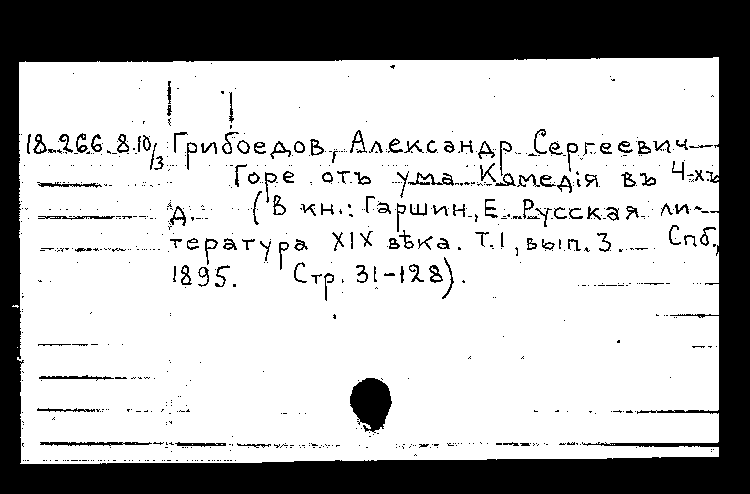 18.266.8.10/3 Грибоедов, Александр Сергеевич
Горе отъ ума Комедія въ 4-хъ
д. (В кн.: Гаршин, Е. Русская ли-
тература XIX вѣка. Т.1, вып. 3. Спб.,
1895. Стр. 31-128).